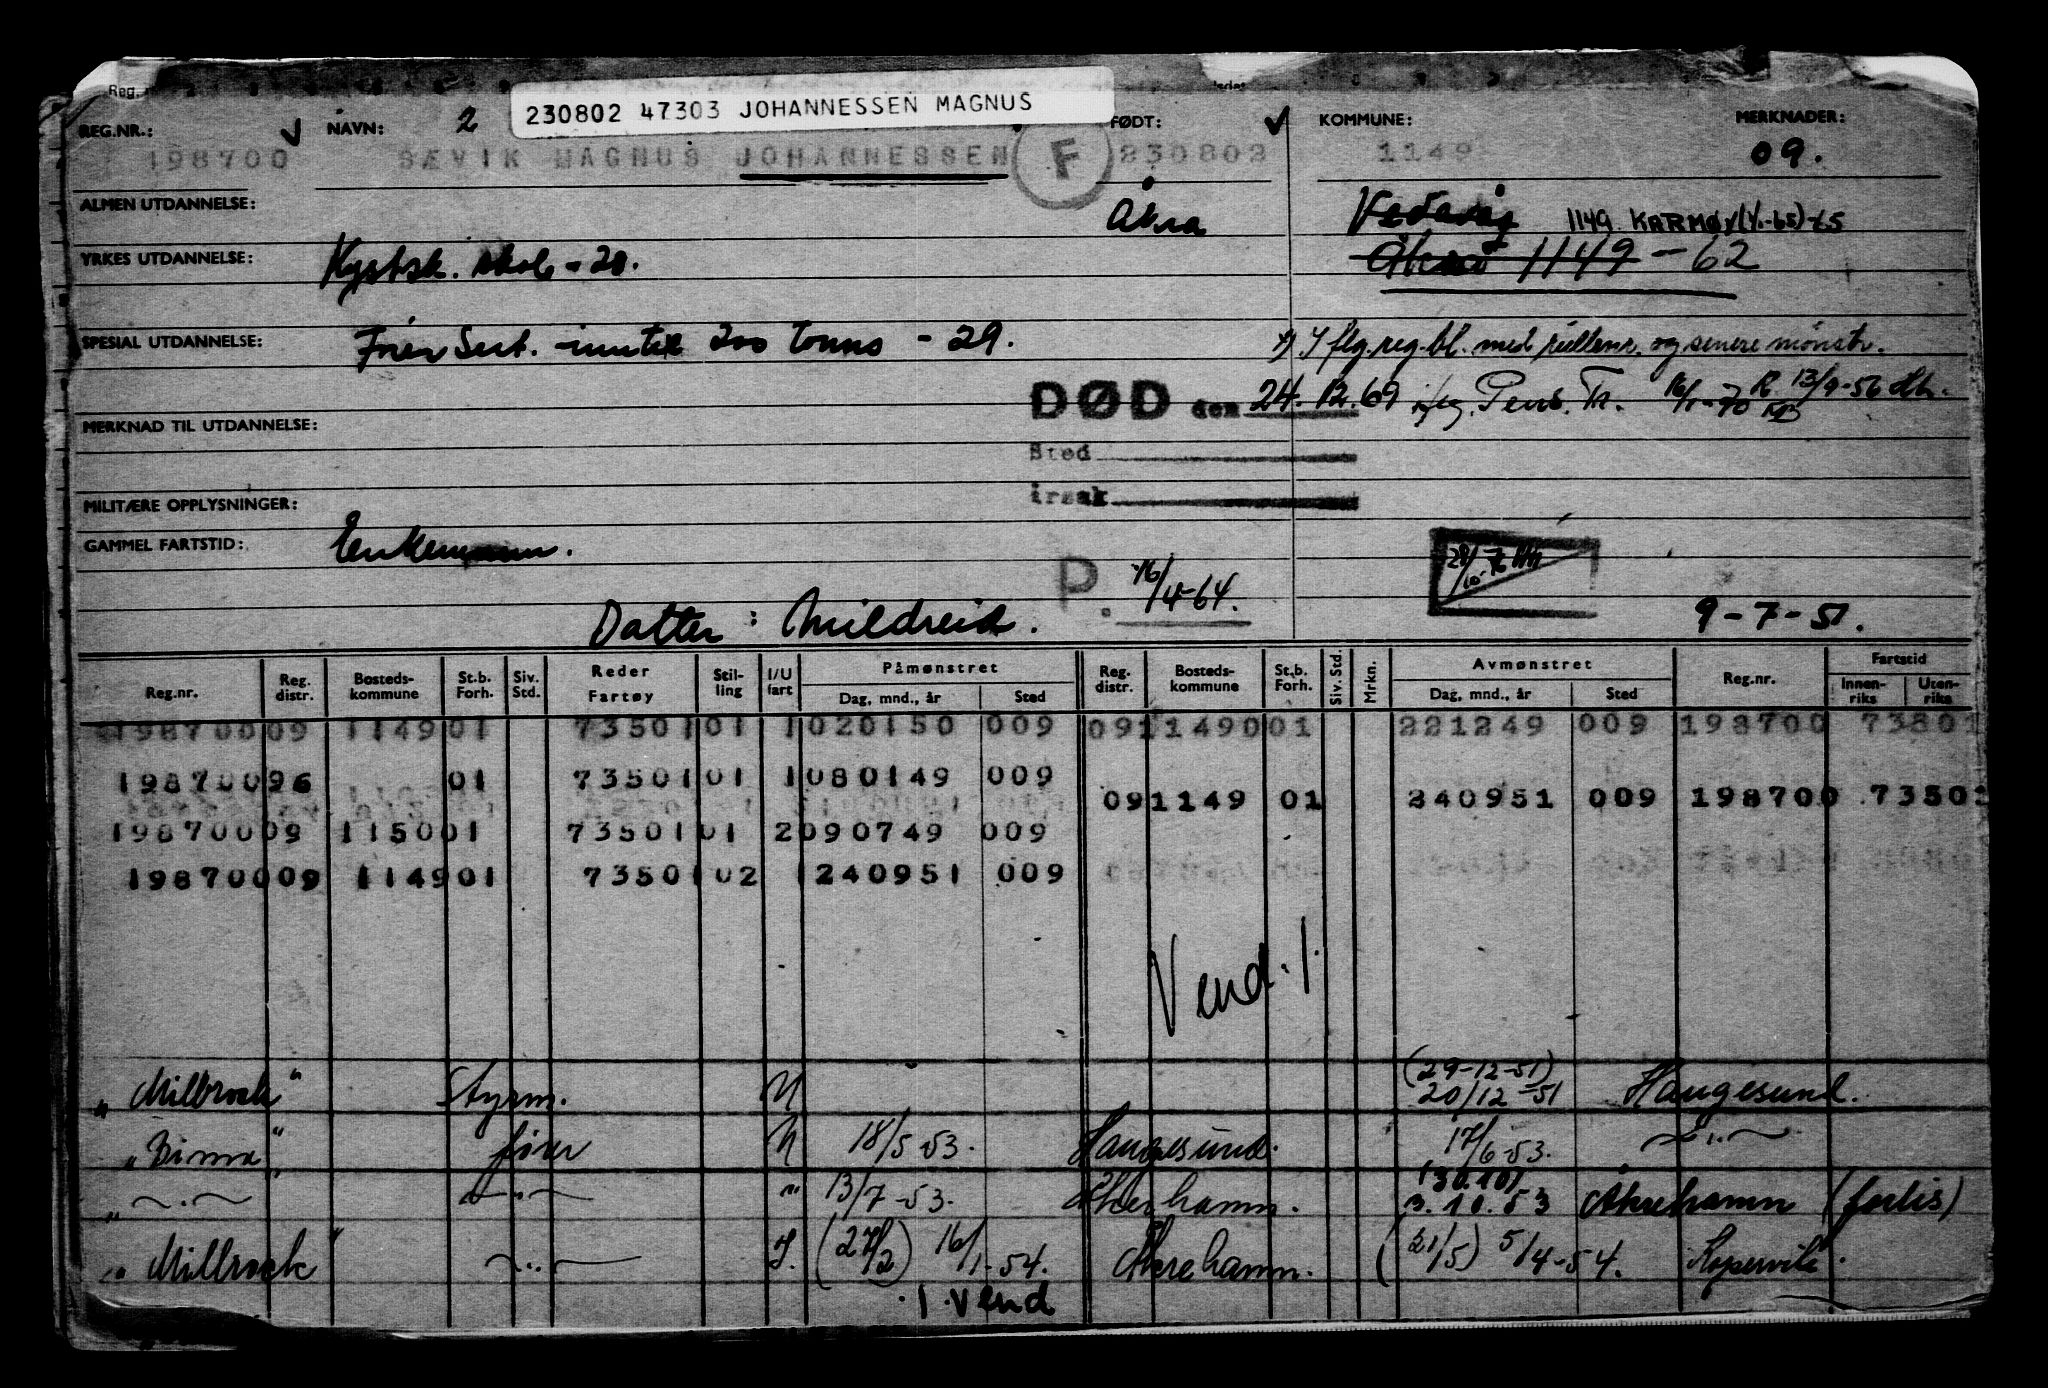 230802 47303 JOHANNESSEN MAGNUS
REG.NR.: NAVN: 2 FØDT: KOMMUNE: MERKNADER:
198700 SÆVIK MAGNUS JOHANNESSEN F 230802 1149 09.
ALMEN UTDANNELSE: Åkra Vedavåg 1149 KARMØY (1/1-65)-65
YRKES UTDANNELSE: Kystsk. skole - 20. Åkra 1149 - 62
SPESIAL UTDANNELSE: Fører Sert. inntil 200 tonns - 29. x) I flg. reg.bl. med rullenr. og senere mønstr.
DØD den 24.12.69 iflg. Pens. Tr. 16/1-70 13/9-56
MERKNAD TIL UTDANNELSE:
Sted
årsak
MILITÆRE OPPLYSNINGER:
GAMMEL FARTSTID: Enkemann.
P. 16/4-64.
Datter: Mildreid. 9-7-51.
Reg.nr. Reg. distr. Bosteds-kommune St.b. Forh. Siv. Std. Reder Fartøy Stil-ling I/U fart Påmønstret Dag, mnd., år Sted Reg. distr. Bosteds-kommune St.b. Forh. Siv. Std. Mrkn. Avmønstret Dag, mnd., år Sted Reg.nr. Fartstid Innen-riks Uten-riks
198700 09 1149 01 7350 1 01 1 020150 009 09 1149 0 01 221249 009 198700 73801
198700 96 01 7350 1 01 1 080149 009
09 1149 01 240951 009 198700 7350
198700 09 1150 01 7350 1 01 2 090749 009
198700 09 1149 01 7350 1 02 1 240951 009
Vend ./.
"Millrock" Styrm. U (29-12-51) 20/12-51 Haugesund.
fører U 18/5-53. Haugesund. 17/6-53. — " —
" — . — — " — " 13/7-53. Åkrehamn. (30.10) 3.10.53 Åkrehamn (forlis)
"Millrock" — " — I. (27/2) 16/1-54. Åkrehamn. (21/5) 5/4-54. Kopervik.
./. Vend